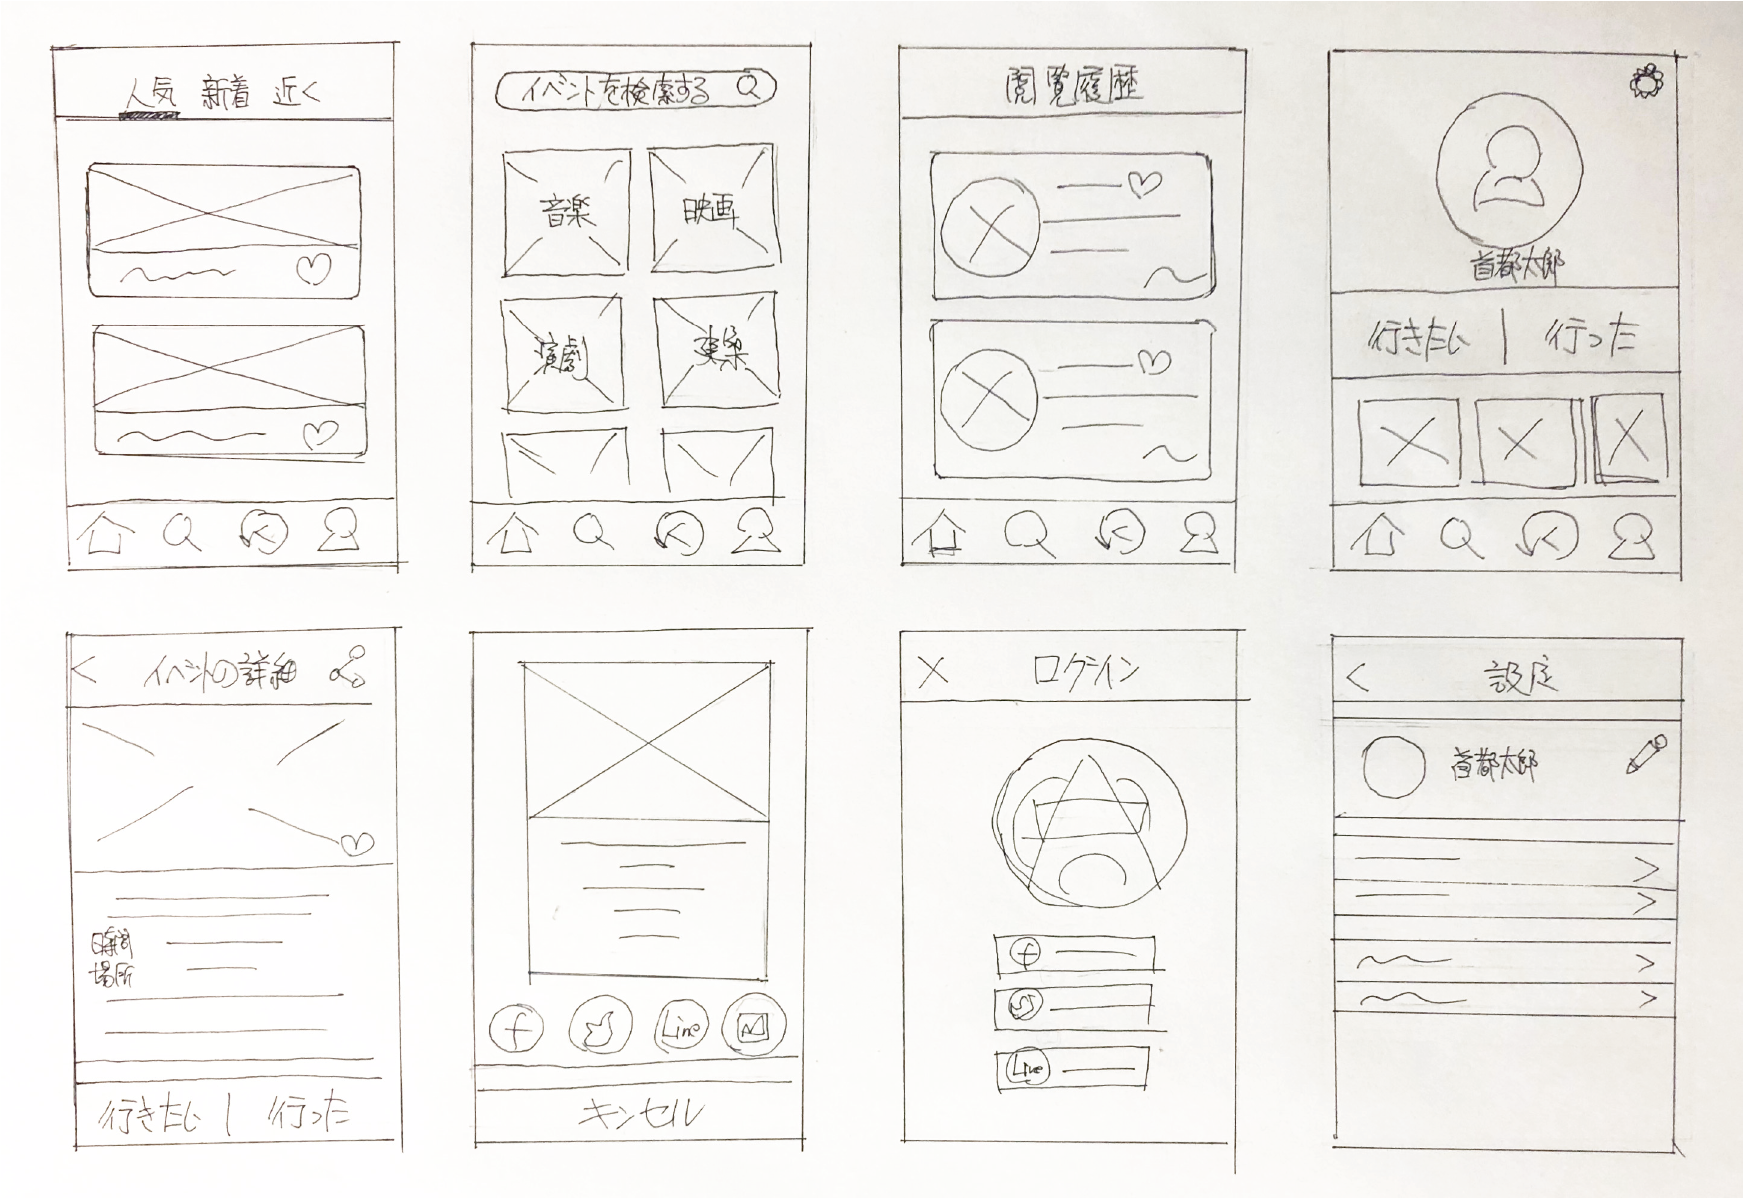 人気 新着 近く
イベントを検索する
音楽
映画
演劇
閲覧履歴
首都太郎
行きたい | 行った
イベントの詳細
時間
場所
行きたい | 行った
f
Line
キンセル
ログイン
f
Line
設定
首都太郎